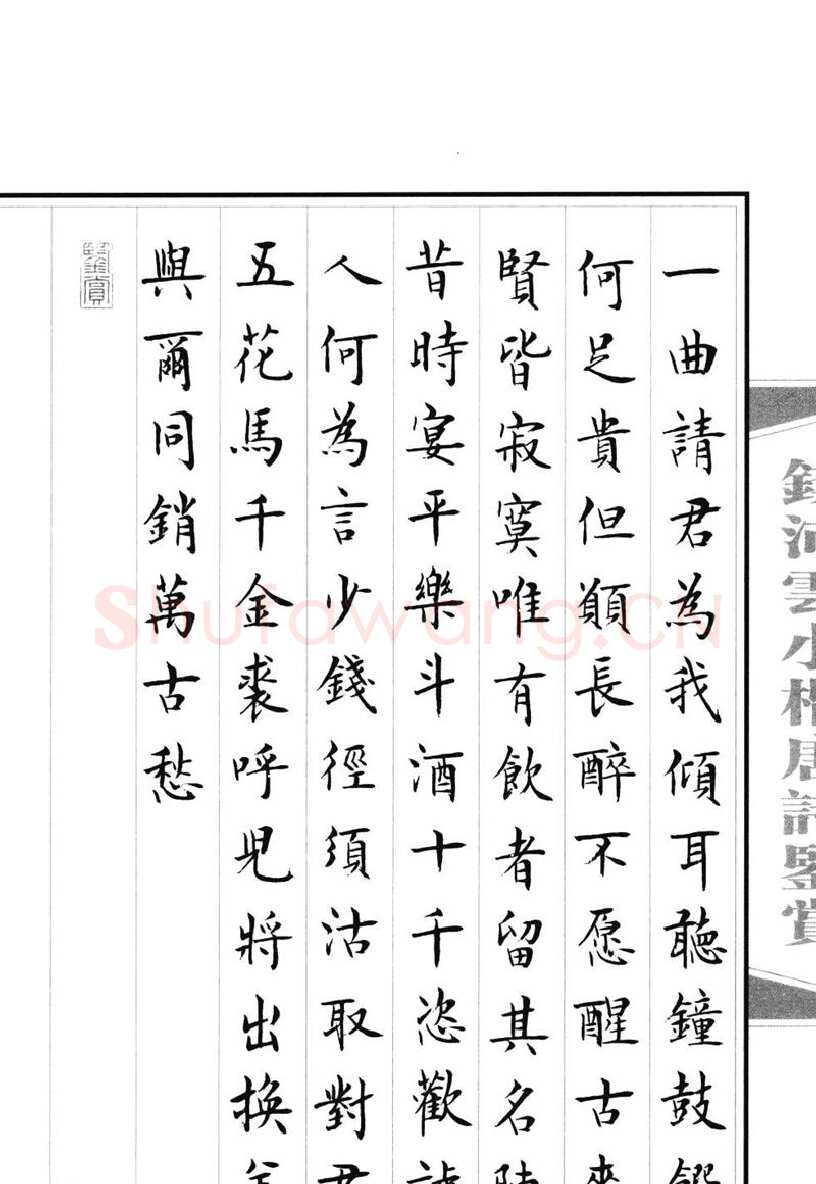 錢沛雲小楷唐詩鑒賞
一曲請君為我傾耳聽鐘鼓饌
何足貴但願長醉不愿醒古來
賢皆寂寞唯有飲者留其名陳
昔時宴平樂斗酒十千恣歡謔
人何為言少錢徑須沽取對君
五花馬千金裘呼兒將出換美
與爾同銷萬古愁
鑒賞
Shufawang.CN